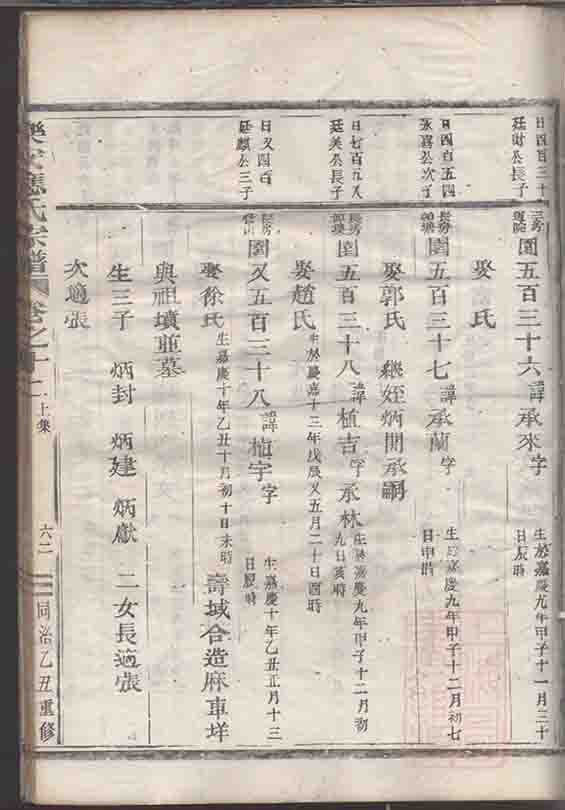 日四百三十
廷財公長子
三房
園五百三十六諱承來字
生於嘉慶九年甲子十一月三十
日辰時
娶 氏
日四百五四
永喜公次子
長房
園五百三十七諱承蘭字
生 嘉慶九年甲子十二月初七
日申時
娶郭氏 繼姪炳開承嗣
日七百五又
廷美公長子
長房
園五百三十八諱植吉字承林
生於嘉慶九年甲子十二月初
九日亥時
娶趙氏
生於慶嘉十三年戊辰又五月二十日酉時
日又四百
廷麒公三子
長房
園又五百三十八諱植宇字
生嘉慶十年乙丑正月十三
日辰時
娶徐氏
生嘉慶十年乙丑十月初十日未時
壽域合造麻車垟
與祖墳並墓
生三子 炳封 炳建 炳獻 二女長適張
次適張
樂安應氏宗譜
卷之十二上集
六二
同治乙丑重修